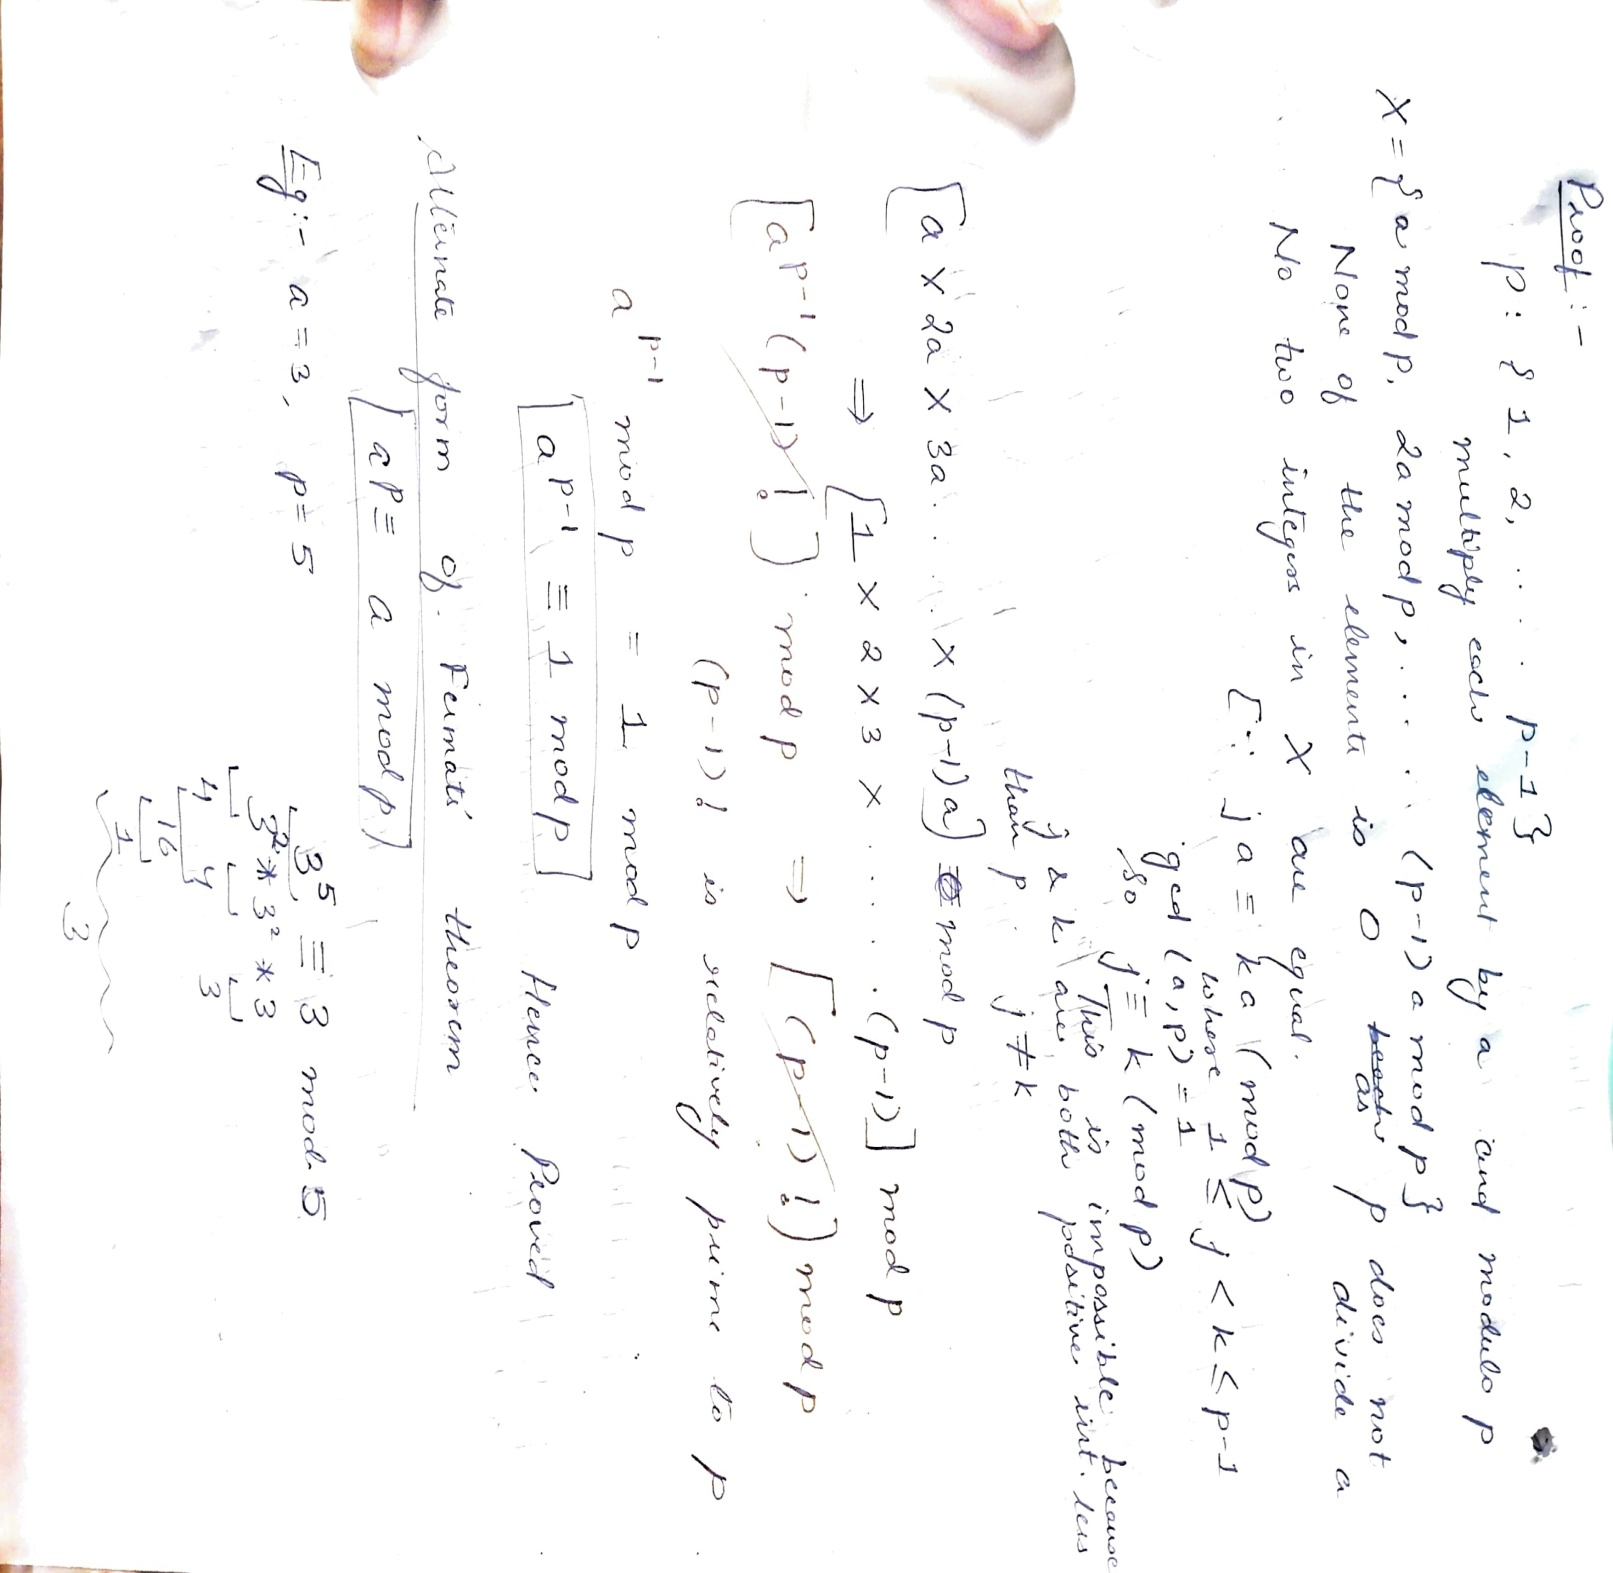 Proof :-
P : { 1, 2, ..... p-1}
multiply each element by a and modulo p
X = { a mod p, 2a mod p, ..... (p-1) a mod p}
None of the elements is 0 as p does not divide a
No two integers in X are equal.
[∵ ja ≡ ka (mod p)
where 1 ≤ j < k ≤ p-1
gcd (a, p) = 1
so j ≡ k (mod p)
This is impossible because
j & k are both positive int. less
than p j ≠ k
[a × 2a × 3a ..... × (p-1)a] ≡ mod p
⇒ [1 × 2 × 3 × ..... (p-1)] mod p
[a^{p-1} (p-1)!] mod p ⇒ [(p-1)!] mod p
(p-1)! is relatively prime to p
a^{p-1} mod p = 1 mod p
[a^{p-1} ≡ 1 mod p] Hence Proved
Alternate form of Fermats' theorem
[a^p ≡ a mod p]
Eg:- a = 3, p = 5
3^5 ≡ 3 mod 5
3^2 * 3^2 * 3
4 4 3
16
1
3